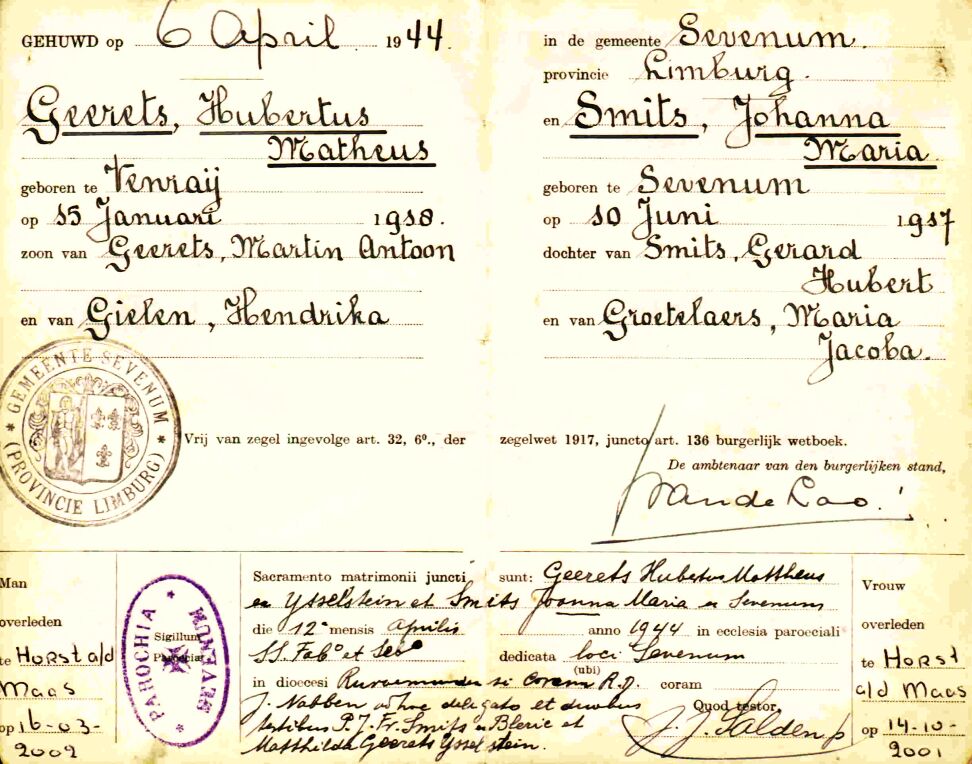 GEHUWD op 6 April 1944.
Geerets, Hubertus
Matheus
geboren te Venraij
op 15 Januari 1918.
zoon van Geerets, Martin Antoon
en van Gielen, Hendrika
GEMEENTE SEVENUM
(PROVINCIE LIMBURG)
in de gemeente Sevenum.
provincie Limburg.
en Smits, Johanna
Maria.
geboren te Sevenum
op 10 Juni 1917
dochter van Smits, Gerard
Hubert
en van Groetelaers, Maria
Jacoba.
Vrij van zegel ingevolge art. 32, 6º., der zegelwet 1917, juncto art. 136 burgerlijk wetboek.
De ambtenaar van den burgerlijken stand,
Man
overleden
te Horst a/d
Maas
op 16-03-
2002
PAROCHIA SEVENUM
Sigillum
Parochiae
Sacramento matrimonii juncti sunt: Geerets Hubertus Mattheus
ex Ysselstein et Smits Joanna Maria ex Sevenum
die 12ª mensis Aprilis anno 1944 in ecclesia paroeciali
SS. Fabº et Sebº dedicata loci Sevenum
(ubi)
in dioecesi coram R.D. coram
J. Nabben ad hoc delegato et duobus
testibus P. J. Fr. Smits ex Bleric et
Matthilda Geerets Ysselstein.
Quod testor,
Vrouw
overleden
te Horst
a/d Maas
op 14-10-
2001